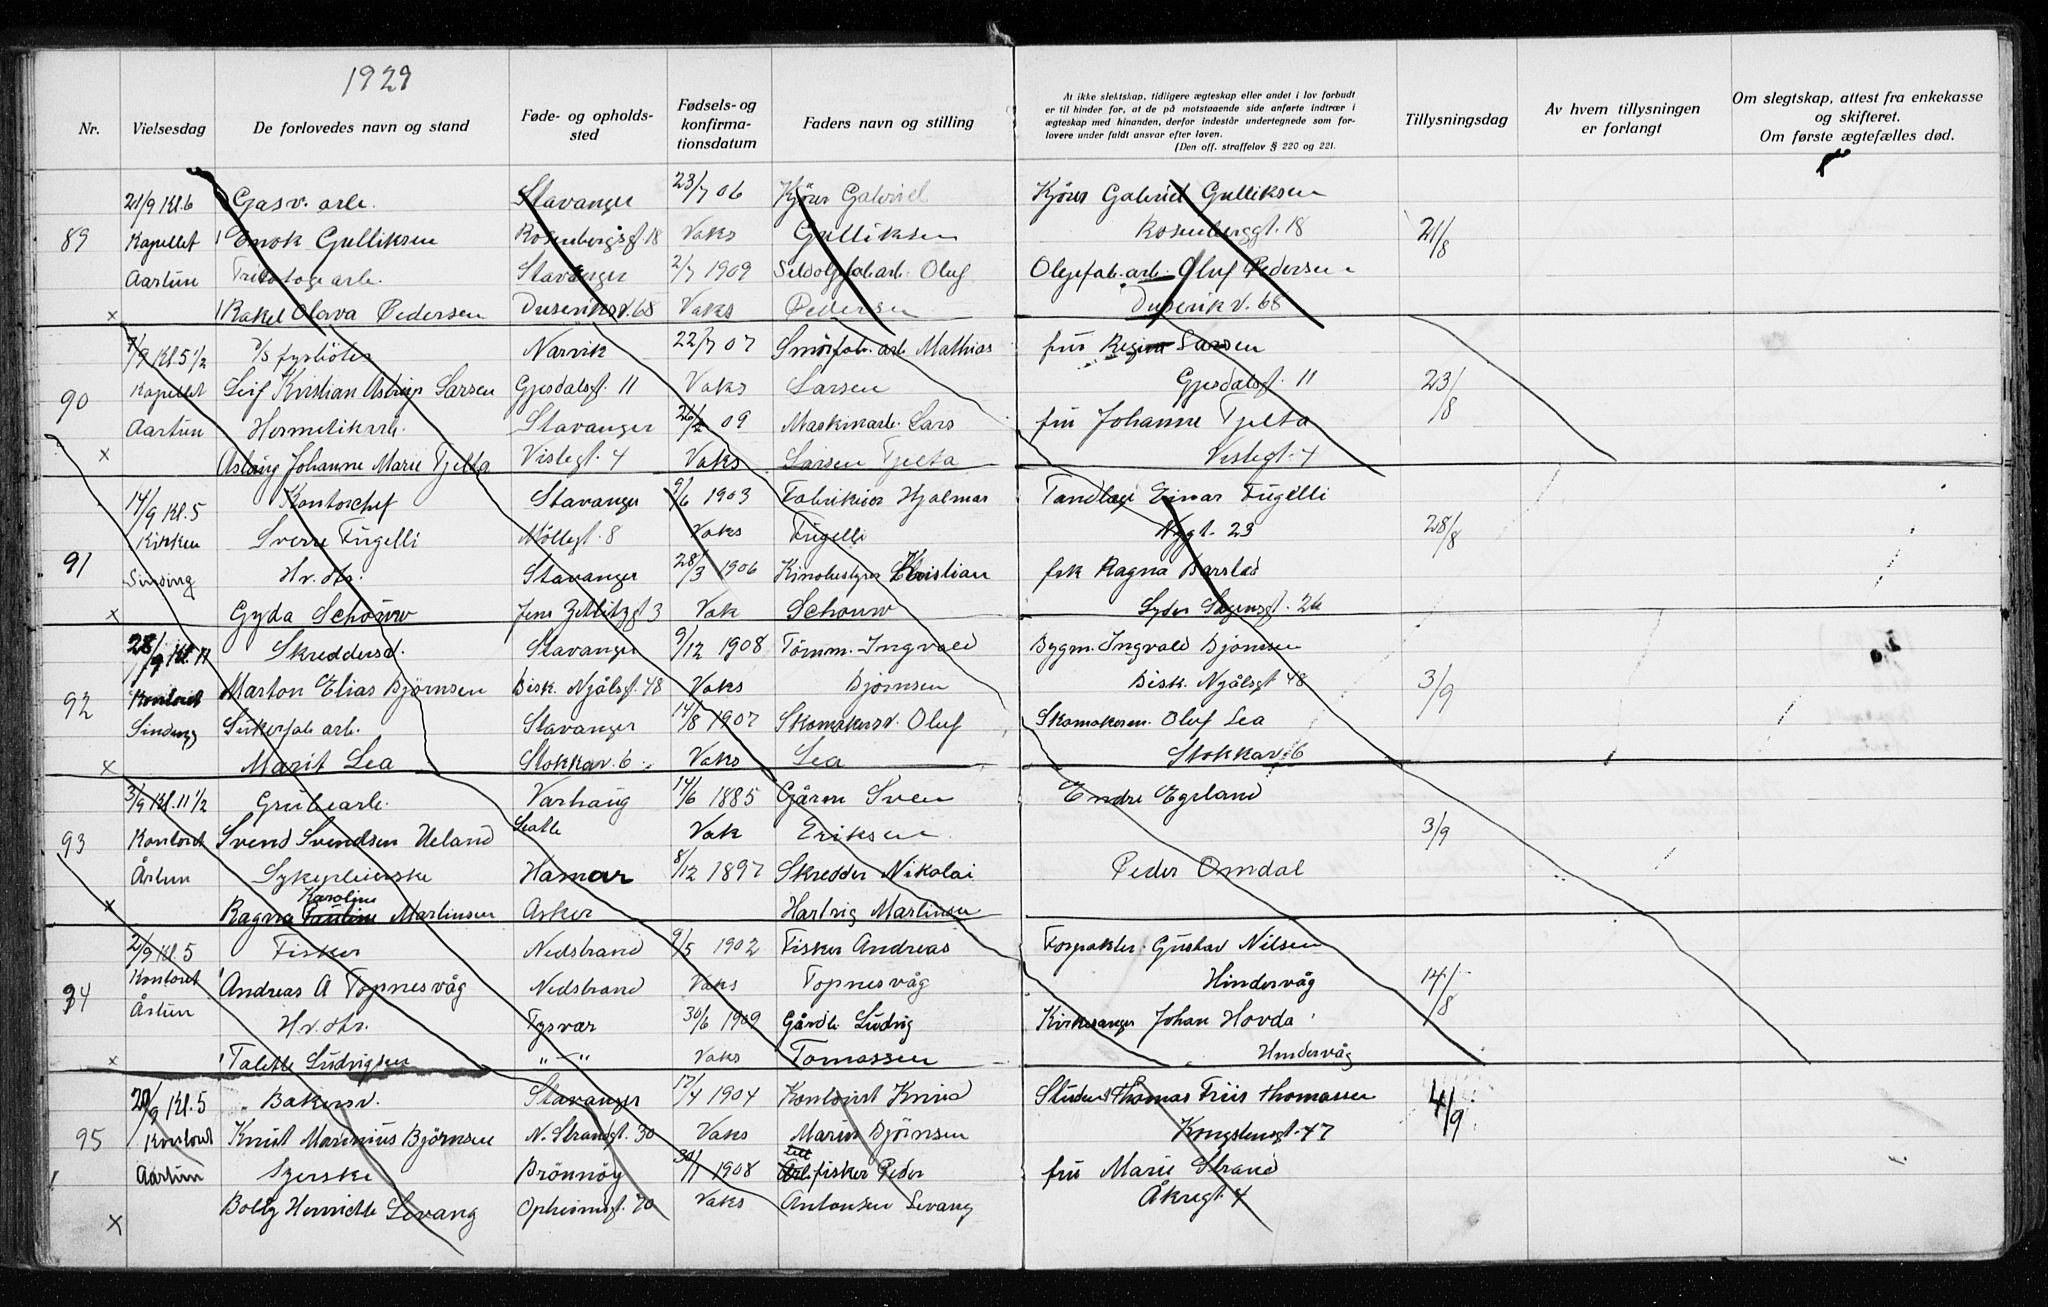 1929
Nr.
Vielsesdag
De forlovedes navn og stand
Føde- og opholds-
sted
Fødsels- og
konfirma-
tionsdatum
Faders navn og stilling
At ikke slektskap, tidligere ægteskap eller andet i lov forbudt
er til hinder for, at de på motstaaende side anførte indtrær i
ægteskap med hinanden, derfor indestår undertegnede som for-
lovere under fuldt ansvar efter loven.
(Den off. straffelov § 220 og 221.
Tillysningsdag
Av hvem tillysningen
er forlangt
Om slegtskap, attest fra enkekasse
og skifteret.
Om første ægtefælles død.
21/9 Kl.6 Gasv. arb. Stavanger 23/7 06 Kjører Gabriel Kjører Gabriel Gulliksen
89 Kapellet Enok Gulliksen Rosenbergsgt. 18 Vaks Gulliksen Rosenberggt. 18 21/8
Aartun arb. Stavanger 2/7 1909 Sildoljefab. arb. Oluf Oljefab. arb. Oluf Pedersen
x Rakel Olava Pedersen Duserikv. 68 Vaks Pedersen Duserikv. 68
7/9 Kl.5 1/2 D/S fyrböter Narvik 22/7 07 Smörfab. arb. Mathias fru Regine Larsen
90 Kapellet Leif Kristian Astrup Larsen Gjesdalsgt. 11 Vaks Larsen Gjesdalsgt. 11 23/8
Aartun Hermetikarb. Stavanger 26/2 09 Maskinarb. Lars fru Johanne Tjelta
x Aslaug Johanne Marie Tjelta Vistegt. 4 Vaks Larsen Tjelta Vistegt. 4
14/9 Kl.5 Kontorchef Stavanger 9/6 1903 Fabrikeier Hjalmar Tandlæge Einar Fugelli
91 Kirken Sverre Fugelli Möllegt. 8 Vaks Fugelli Nygt. 23 28/8
Sinding Hv. dtr. Stavanger 28/3 1906 Kinobestyrer Kristian frk Ragna Barstad
x Gyda Schouw Jens Zetlitzgt 3 Vak Schouw Lyder Sagensgt. 26
28/9 Kl. 11 Skreddersv. Stavanger 9/12 1908 Tömm. Ingvald Bygm. Ingvald Bjørnsen
92 Kontoret Marton Elias Bjørnsen Bisk. Njålsgt. 48 Vaks Bjørnsen Bisk. Njålsgt 48 3/9
Sinding Sukerfab arb. Stavanger 14/8 1907 Skomakersv. Oluf Skomakerm. Oluf Lea
x Marit Lea Stokkav. 6 Vaks Lea Stokkav. 6
3/9 Kl.11 1/2 Grubearb. Varhaug 14/6 1885 Gårdm Sven Endre Egeland
93 Kontoret Svend Svendsen Ueland Seatle Vak Eriksen 3/9
Årtun Sykepleierske Hamar 8/12 1897 Skredder Nikolai Peder Omdal
Karoline
x Ragna Pauline Martinsen Asker Hartvig Martinsen
21/9 Kl.5 Fisker Nedstrand 9/5 1902 Fisker Andreas Forpakter Gustav Nilsen
94 Kontoret Andreas A Topnesvåg Nedstrand Vaks Topnesvåg Hindervåg 14/8
Årtun Hv. dtr. Tysvær 30/6 1909 Gårdb. Ludvig Kirkesanger Johan Hovda
x Talette Ludvigsen „—„ Vaks Tomassen Hindervåg
20/9 Kl.5 Bakersv. Stavanger 12/4 1904 Kontorist Knud Student Thomas Friis Thomassen
95 Kontoret Knut Marinius Björnsen N. Strandgt. 30 Vaks Marius Bjørnsen Kongstensgt. 47 4/9
Aartun Syerske Brönnöy 30/1 1908 fisker Peder fru Marie Strand
x Bolly Henriette Levang Opheimsgt. 70 Vaks Antonsen Levang Åkregt. 4